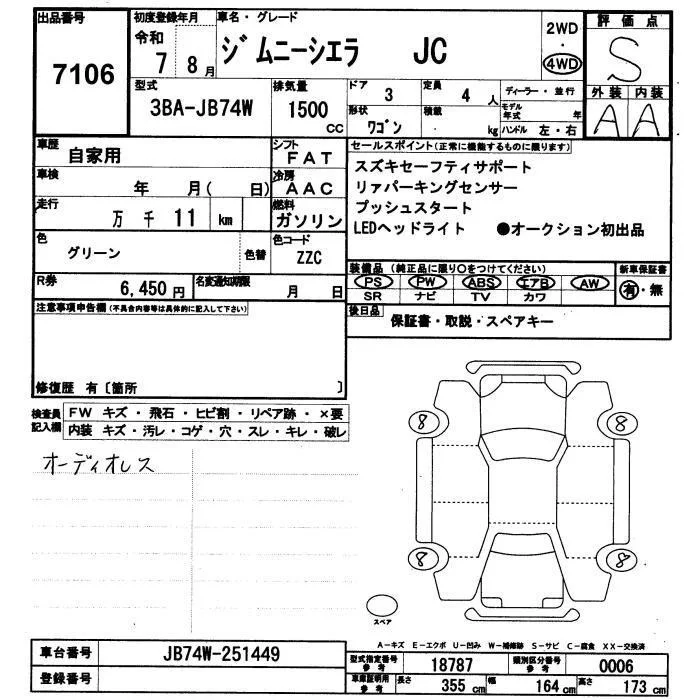 出品番号
7106
初度登録年月
令和
7 8月
車名・グレード
ジムニーシエラ JC
2WD
・
4WD
評価点
S
外装 内装
A A
型式
3BA-JB74W
排気量
1500
CC
ドア
3
定員
4人
形状
ワゴン
積載
kg
ディーラー・並行
モデル
年式 年
ハンドル 左・右
車歴
自家用
シフト
FAT
車検
年 月( 日)
冷房
AAC
走行
万 千 11 km
燃料
ガソリン
色
グリーン
色替
色コード
ZZC
R券
6,450円
名変通知期限
月 日
セールスポイント(正常に機能するものに限ります)
スズキセーフティサポート
リァパーキングセンサー
プッシュスタート
LEDヘッドライト ●オークション初出品
装備品(純正品に限り○をつけてください)
PS PW ABS エアB AW
SR ナビ TV カワ
新車保証書
有・無
後日品
保証書・取説・スペアキー
注意事項申告欄(不具合内容等は具体的に記入して下さい)
修復歴 有〔箇所 〕
検査員
記入欄
FW キズ・飛石・ヒビ割・リペア跡・×要
内装 キズ・汚レ・コゲ・穴・スレ・キレ・破レ
オーディオレス
8 8
8 8
スペア
A-キズ E-エクボ U-凹み W-補修跡 S-サビ C-腐食 XX-交換済
車台番号
JB74W-251449
登録番号
型式指定番号
参考
18787
類別区分番号
参考
0006
車庫証明用
参考
長さ
355 cm
幅
164 cm
高さ
173 cm